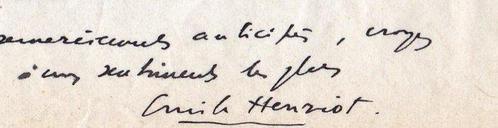 remerciements anticipés, croyez
à mes sentiments les plus
Emile Henriot.